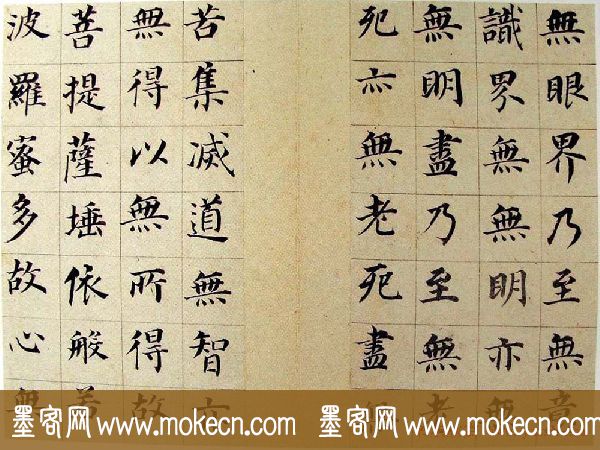 無眼界乃至無意
識界無無明亦無
無明盡乃至無老
死亦無老死盡
苦集滅道無智亦
無得以無所得故
菩提薩埵依般若
波羅蜜多故心無
墨客网 www.mokecn.com 墨客网 www.mokecn.com